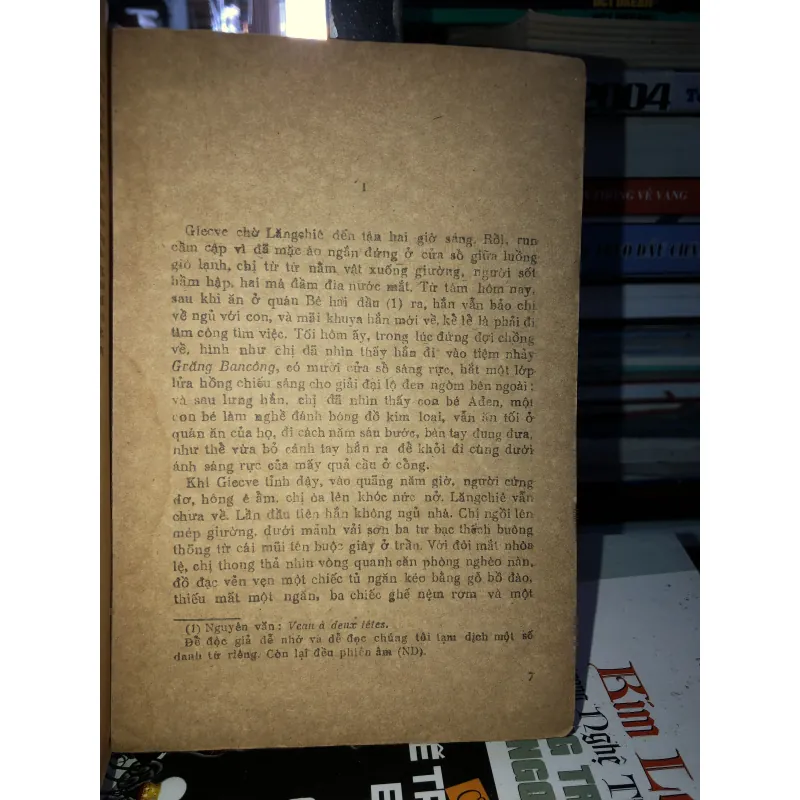 2004
THỐNG VẺ VANG
I
Giecve chờ Lăngchiê đến tận hai giờ sáng. Rồi, run
cầm cập vì đã mặc áo ngắn đứng ở cửa sổ giữa luồng
gió lạnh, chị từ từ nằm vật xuống giường, người sốt
hầm hập, hai má đầm đìa nước mắt. Từ tám hôm nay,
sau khi ăn ở quán Bê hai đầu (1) ra, hắn vẫn bảo chị
về ngủ với con, và mãi khuya hắn mới về, kể lể là phải đi
tìm công tìm việc. Tối hôm ấy, trong lúc đứng đợi chồng
về, hình như chị đã nhìn thấy hắn đi vào tiệm nhảy
Grăng Bancông, có mười cửa sổ sáng rực, hắt một lớp
lửa hồng chiếu sáng cho giải đại lộ đen ngòm bên ngoài;
và sau lưng hắn, chị đã nhìn thấy con bé Ađen, một
con bé làm nghề đánh bóng đồ kim loại, vẫn ăn tối ở
quán ăn của họ, đi cách năm sáu bước, bàn tay đung đưa,
như thể vừa bỏ cánh tay hắn ra để khỏi đi cùng dưới
ánh sáng rực của mấy quả cầu ở cổng.
Khi Giecve tỉnh dậy, vào quãng năm giờ, người cứng
đơ, hông ê ẩm, chị òa lên khóc nức nở. Lăngchiê vẫn
chưa về. Lần đầu tiên hắn không ngủ nhà. Chị ngồi lên
mép giường, dưới mảnh vải sơn ba tư bạc thếch buông
thõng từ cái mũi tên buộc giây ở trần. Với đôi mắt nhòa
lệ, chị thong thả nhìn vòng quanh căn phòng nghèo nàn,
đồ đạc vẻn vẹn một chiếc tủ ngăn kéo bằng gỗ bồ đào,
thiếu mất một ngăn, ba chiếc ghế nệm rơm và một
(1) Nguyên văn: Veau à deux têtes.
Để độc giả dễ nhớ và dễ đọc chúng tôi tạm dịch một số
danh từ riêng. Còn lại đều phiên âm (ND).
7
Kim L
Nghệ T